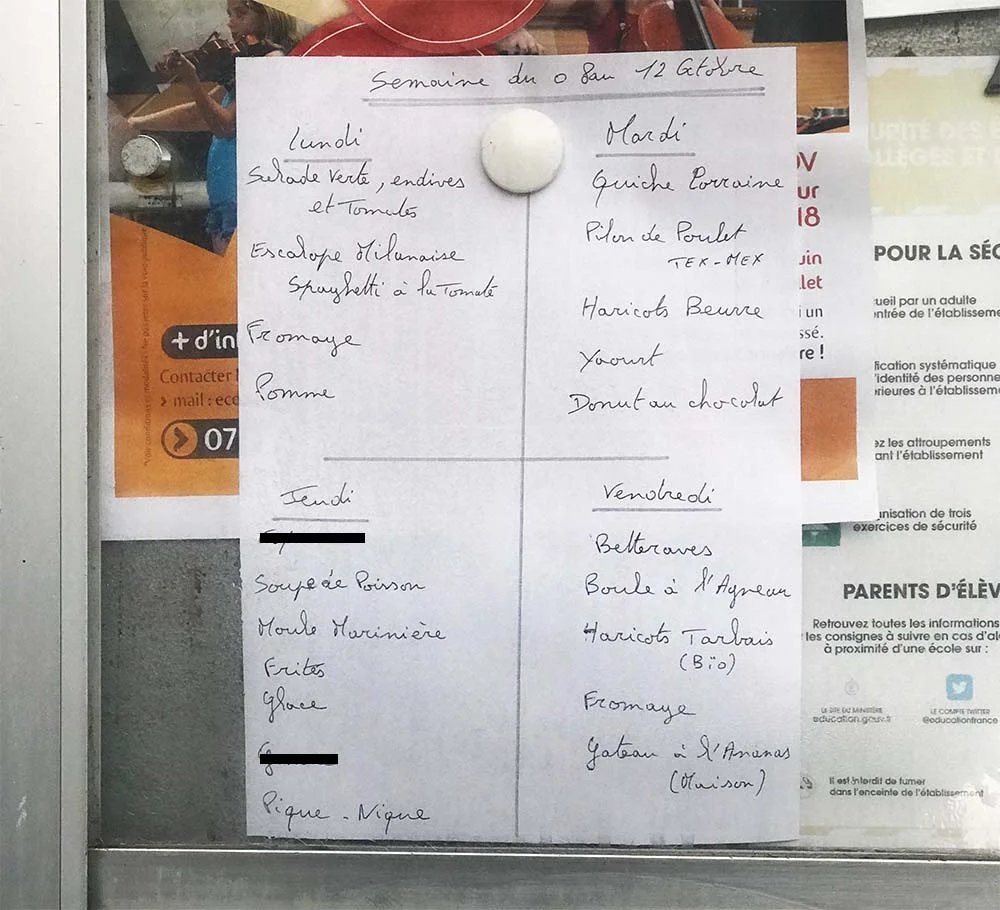 Semaine du 08 au 12 Octobre
Lundi
Salade Verte, endives
et Tomates
Escalope Milanaise
Spaghetti à la Tomate
Fromage
Pomme
Mardi
Quiche Lorraine
Pilon de Poulet
TEX-MEX
Haricots Beurre
Yaourt
Donut au chocolat
Jeudi
Soupe de Poisson
Moule Marinière
Frites
Glace
Pique-Nique
Vendredi
Betteraves
Boule à l'Agneau
Haricots Tarbais
(Bio)
Fromage
Gateau à l'Ananas
(Maison)
+ d'in
Contacter
> mail : eco
07
OV
ur
18
uin
llet
i un
ssé.
re !
POUR LA SÉC
ueil par un adulte
entrée de l'établisseme
fication systématique
l'identité des personne
érieures à l'établissem
ez les attroupements
ant l'établissement
anisation de trois
exercices de sécurité
PARENTS D'ÉLÈV
Retrouvez toutes les informations
les consignes à suivre en cas d'al
à proximité d'une école sur :
LE SITE DU MINISTÈRE
education.gouv.fr
LE COMPTE TWITTER
@educationfrance
Il est interdit de fumer
dans l'enceinte de l'établissement